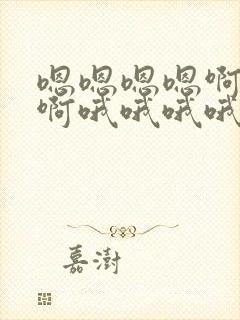 嗯嗯嗯嗯啊
啊哦哦哦哦
嘉澍